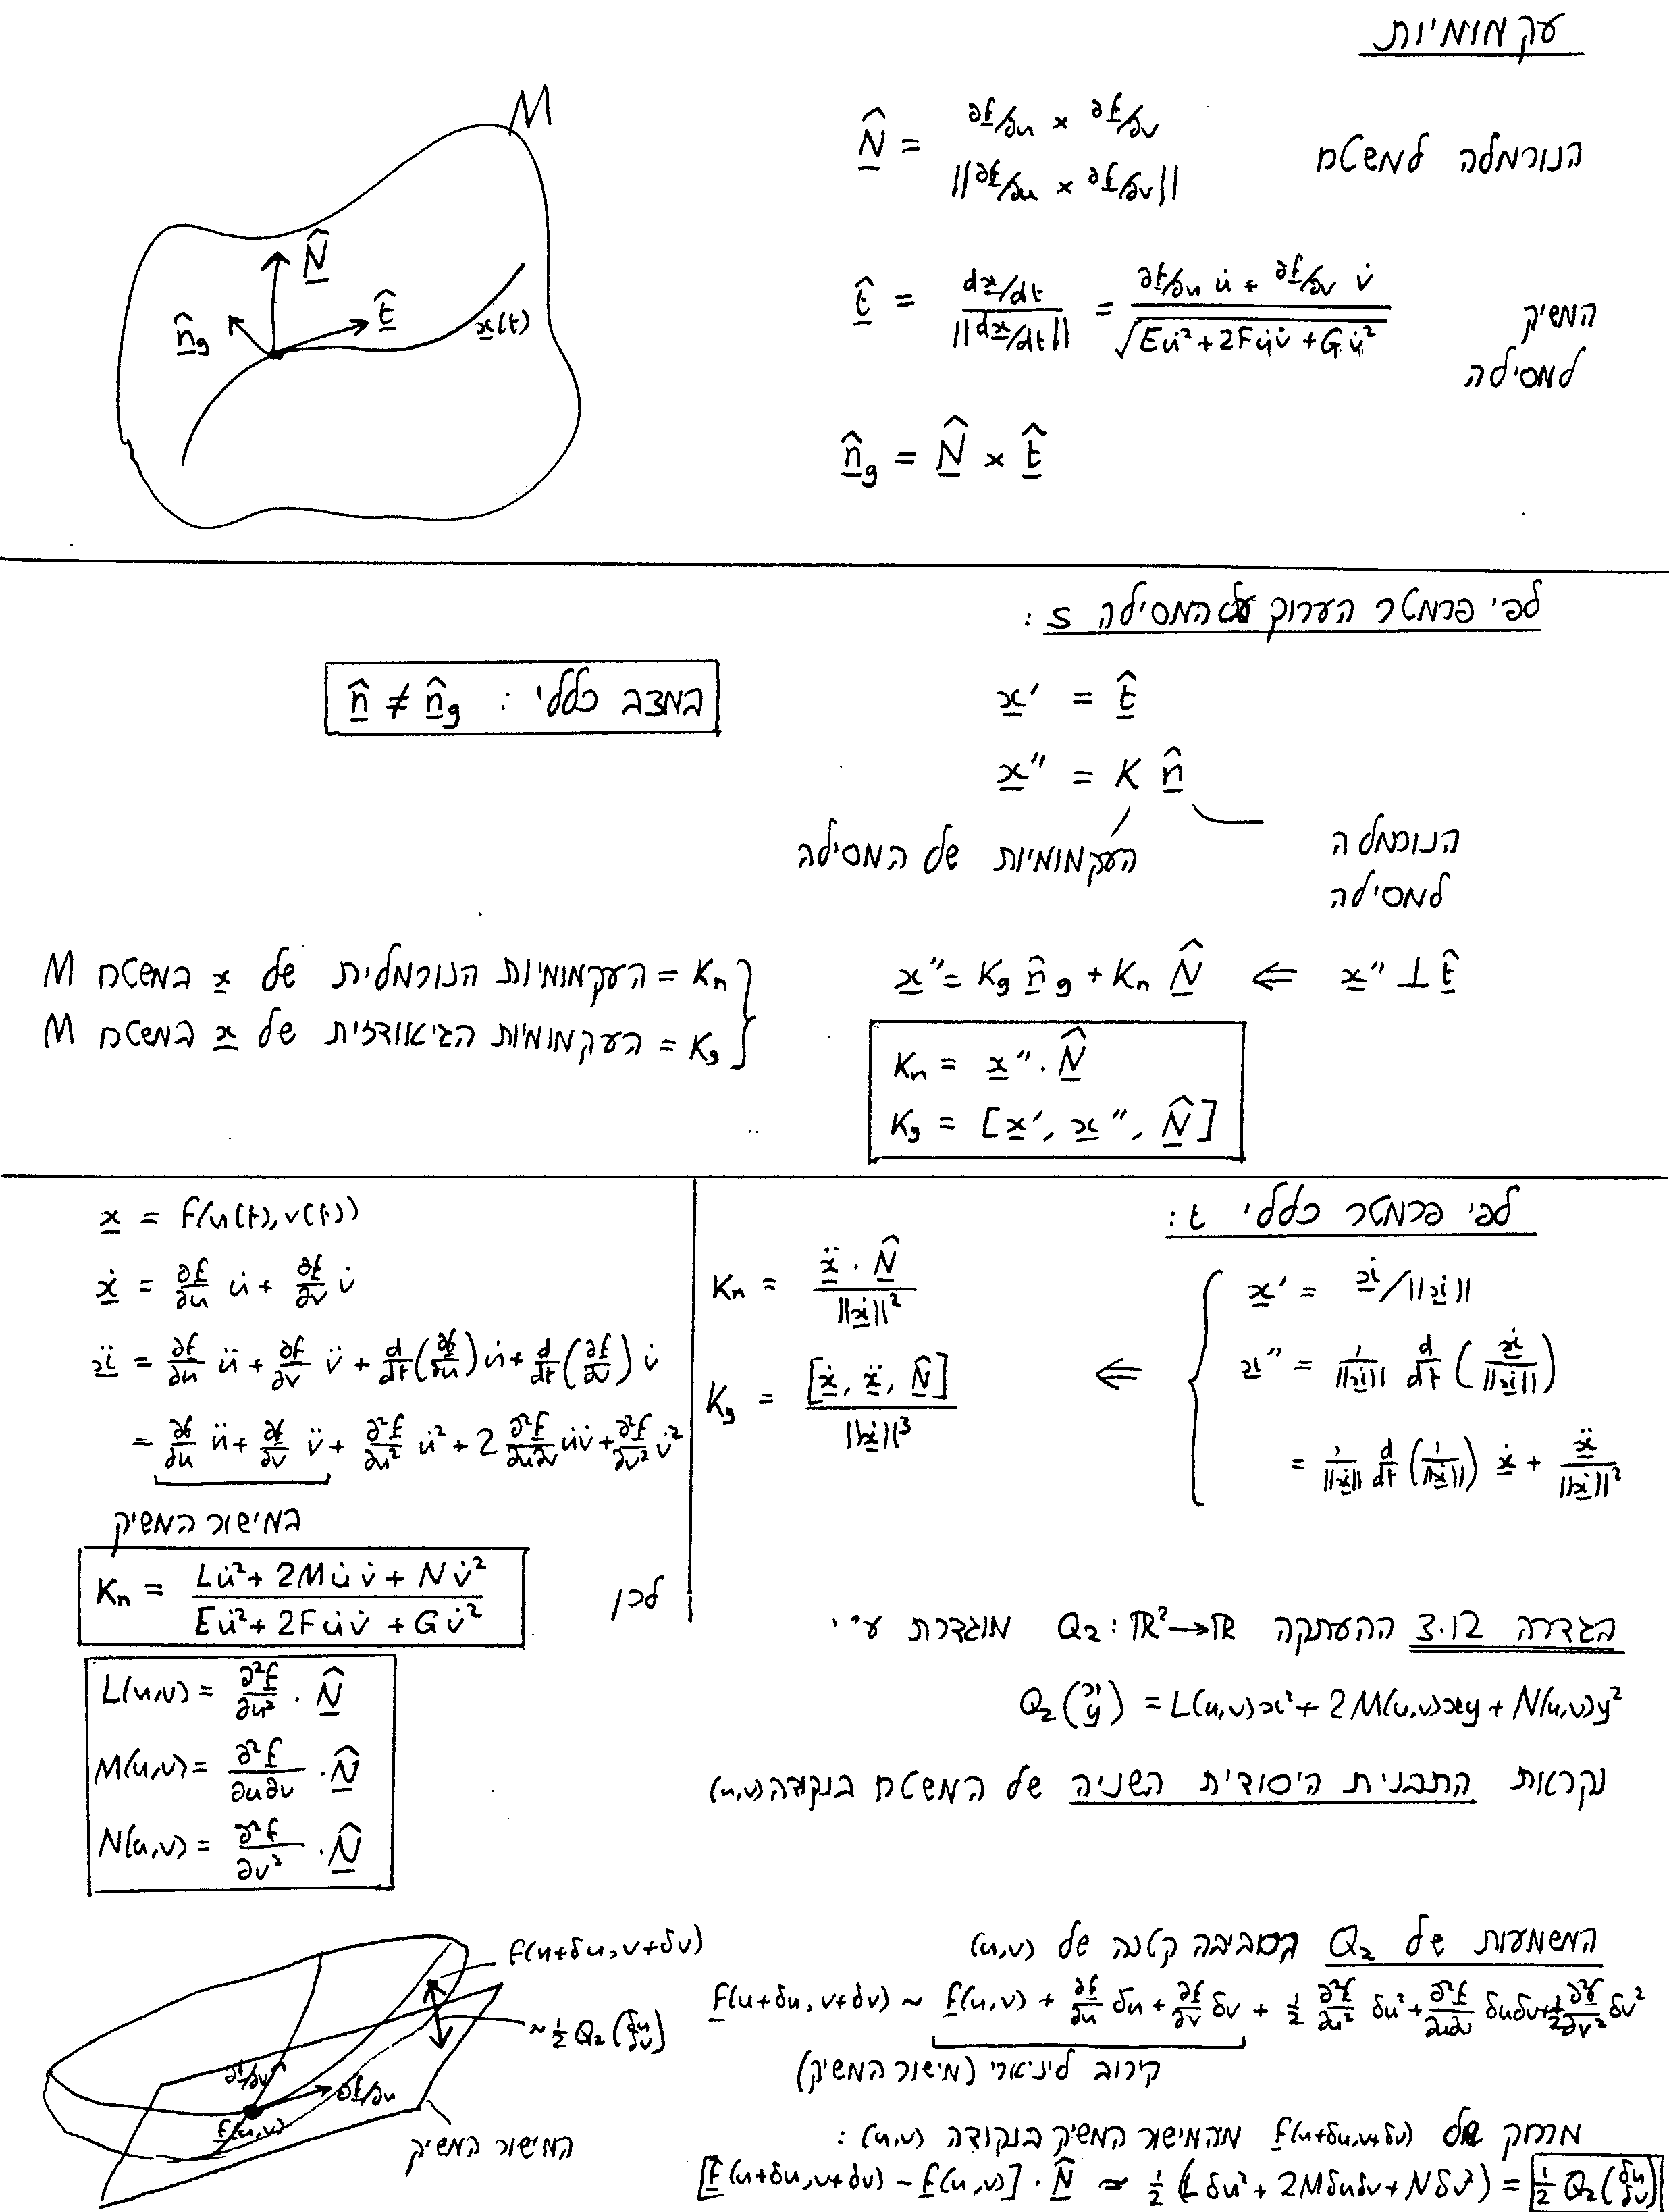 עקמומיות
M
הנורמלה למשטח N̂ = ∂f/∂u × ∂f/∂v / ||∂f/∂u × ∂f/∂v||
N̂
n̂g
t̂
x(t)
המשיק למסילה t̂ = dx/dt / ||dx/dt|| = (∂f/∂u u̇ + ∂f/∂v v̇) / √(Eu̇² + 2Fu̇v̇ + Gv̇²)
n̂g = N̂ × t̂
לפי פרמטר הערוך על המסילה s :
x' = t̂
במצב כללי : n̂ ≠ n̂g
x'' = K n̂
הנורמלה למסילה
העקמומיות של המסילה
x'' ⊥ t̂ ⇐ x'' = Kg n̂g + Kn N̂
Kn = העקמומיות הנורמלית של x במשטח M
Kg = העקמומיות הגיאודזית של x במשטח M
Kn = x'' · N̂
Kg = [x', x'', N̂]
לפי פרמטר כללי t :
x' = ẋ/||ẋ||
x'' = 1/||ẋ|| d/dt (ẋ/||ẋ||)
= 1/||ẋ|| d/dt (1/||ẋ||) ẋ + ẍ/||ẋ||²
⇐
Kn = ẍ · N̂ / ||ẋ||²
Kg = [ẋ, ẍ, N̂] / ||ẋ||³
x = f(u(t), v(t))
ẋ = ∂f/∂u u̇ + ∂f/∂v v̇
ẍ = ∂f/∂u ü + ∂f/∂v v̈ + d/dt(∂f/∂u) u̇ + d/dt(∂f/∂v) v̇
= ∂f/∂u ü + ∂f/∂v v̈ + ∂²f/∂u² u̇² + 2 ∂²f/∂u∂v u̇v̇ + ∂²f/∂v² v̇²
במישור המשיק
לכן Kn = (Lu̇² + 2Mu̇v̇ + Nv̇²) / (Eu̇² + 2Fu̇v̇ + Gv̇²)
L(u,v) = ∂²f/∂u² · N̂
M(u,v) = ∂²f/∂u∂v · N̂
N(u,v) = ∂²f/∂v² · N̂
הגדרה 3.12 ההעתקה Q₂ : ℝ² → ℝ מוגדרת ע"י
Q₂(x y) = L(u,v)x² + 2M(u,v)xy + N(u,v)y²
נקראת התבנית היסודית השניה של המשטח בנקודה (u,v)
המשמעות של Q₂ בסביבה קטנה של (u,v)
f(u+δu, v+δv) ~ f(u,v) + ∂f/∂u δu + ∂f/∂v δv + ½ ∂²f/∂u² δu² + ∂²f/∂u∂v δuδv + ½ ∂²f/∂v² δv²
קירוב ליניארי (מישור המשיק)
מרחק של f(u+δu, v+δv) מהמישור המשיק בנקודה (u,v) :
[f(u+δu, v+δv) − f(u,v)] · N̂ ≃ ½ (Lδu² + 2Mδuδv + Nδv²) = ½ Q₂(δu δv)
f(u+δu, v+δv)
~ ½ Q₂(δu δv)
∂f/∂v
∂f/∂u
f(u,v)
המישור המשיק